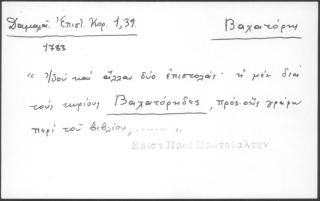 Δαμαλᾶ. Ἐπιστ. Κορ. 1,39. Βαχατόρης
1783
" Ἰδοὺ καὶ ἄλλαι δύο ἐπιστολαί· ἡ μὲν διὰ
τοὺς κυρίους Βαχατόρηδες, πρὸς οὓς γράφω
περὶ τοῦ βιβλίου, ....... "
Επιστ Προς Πρωτοψάλτην